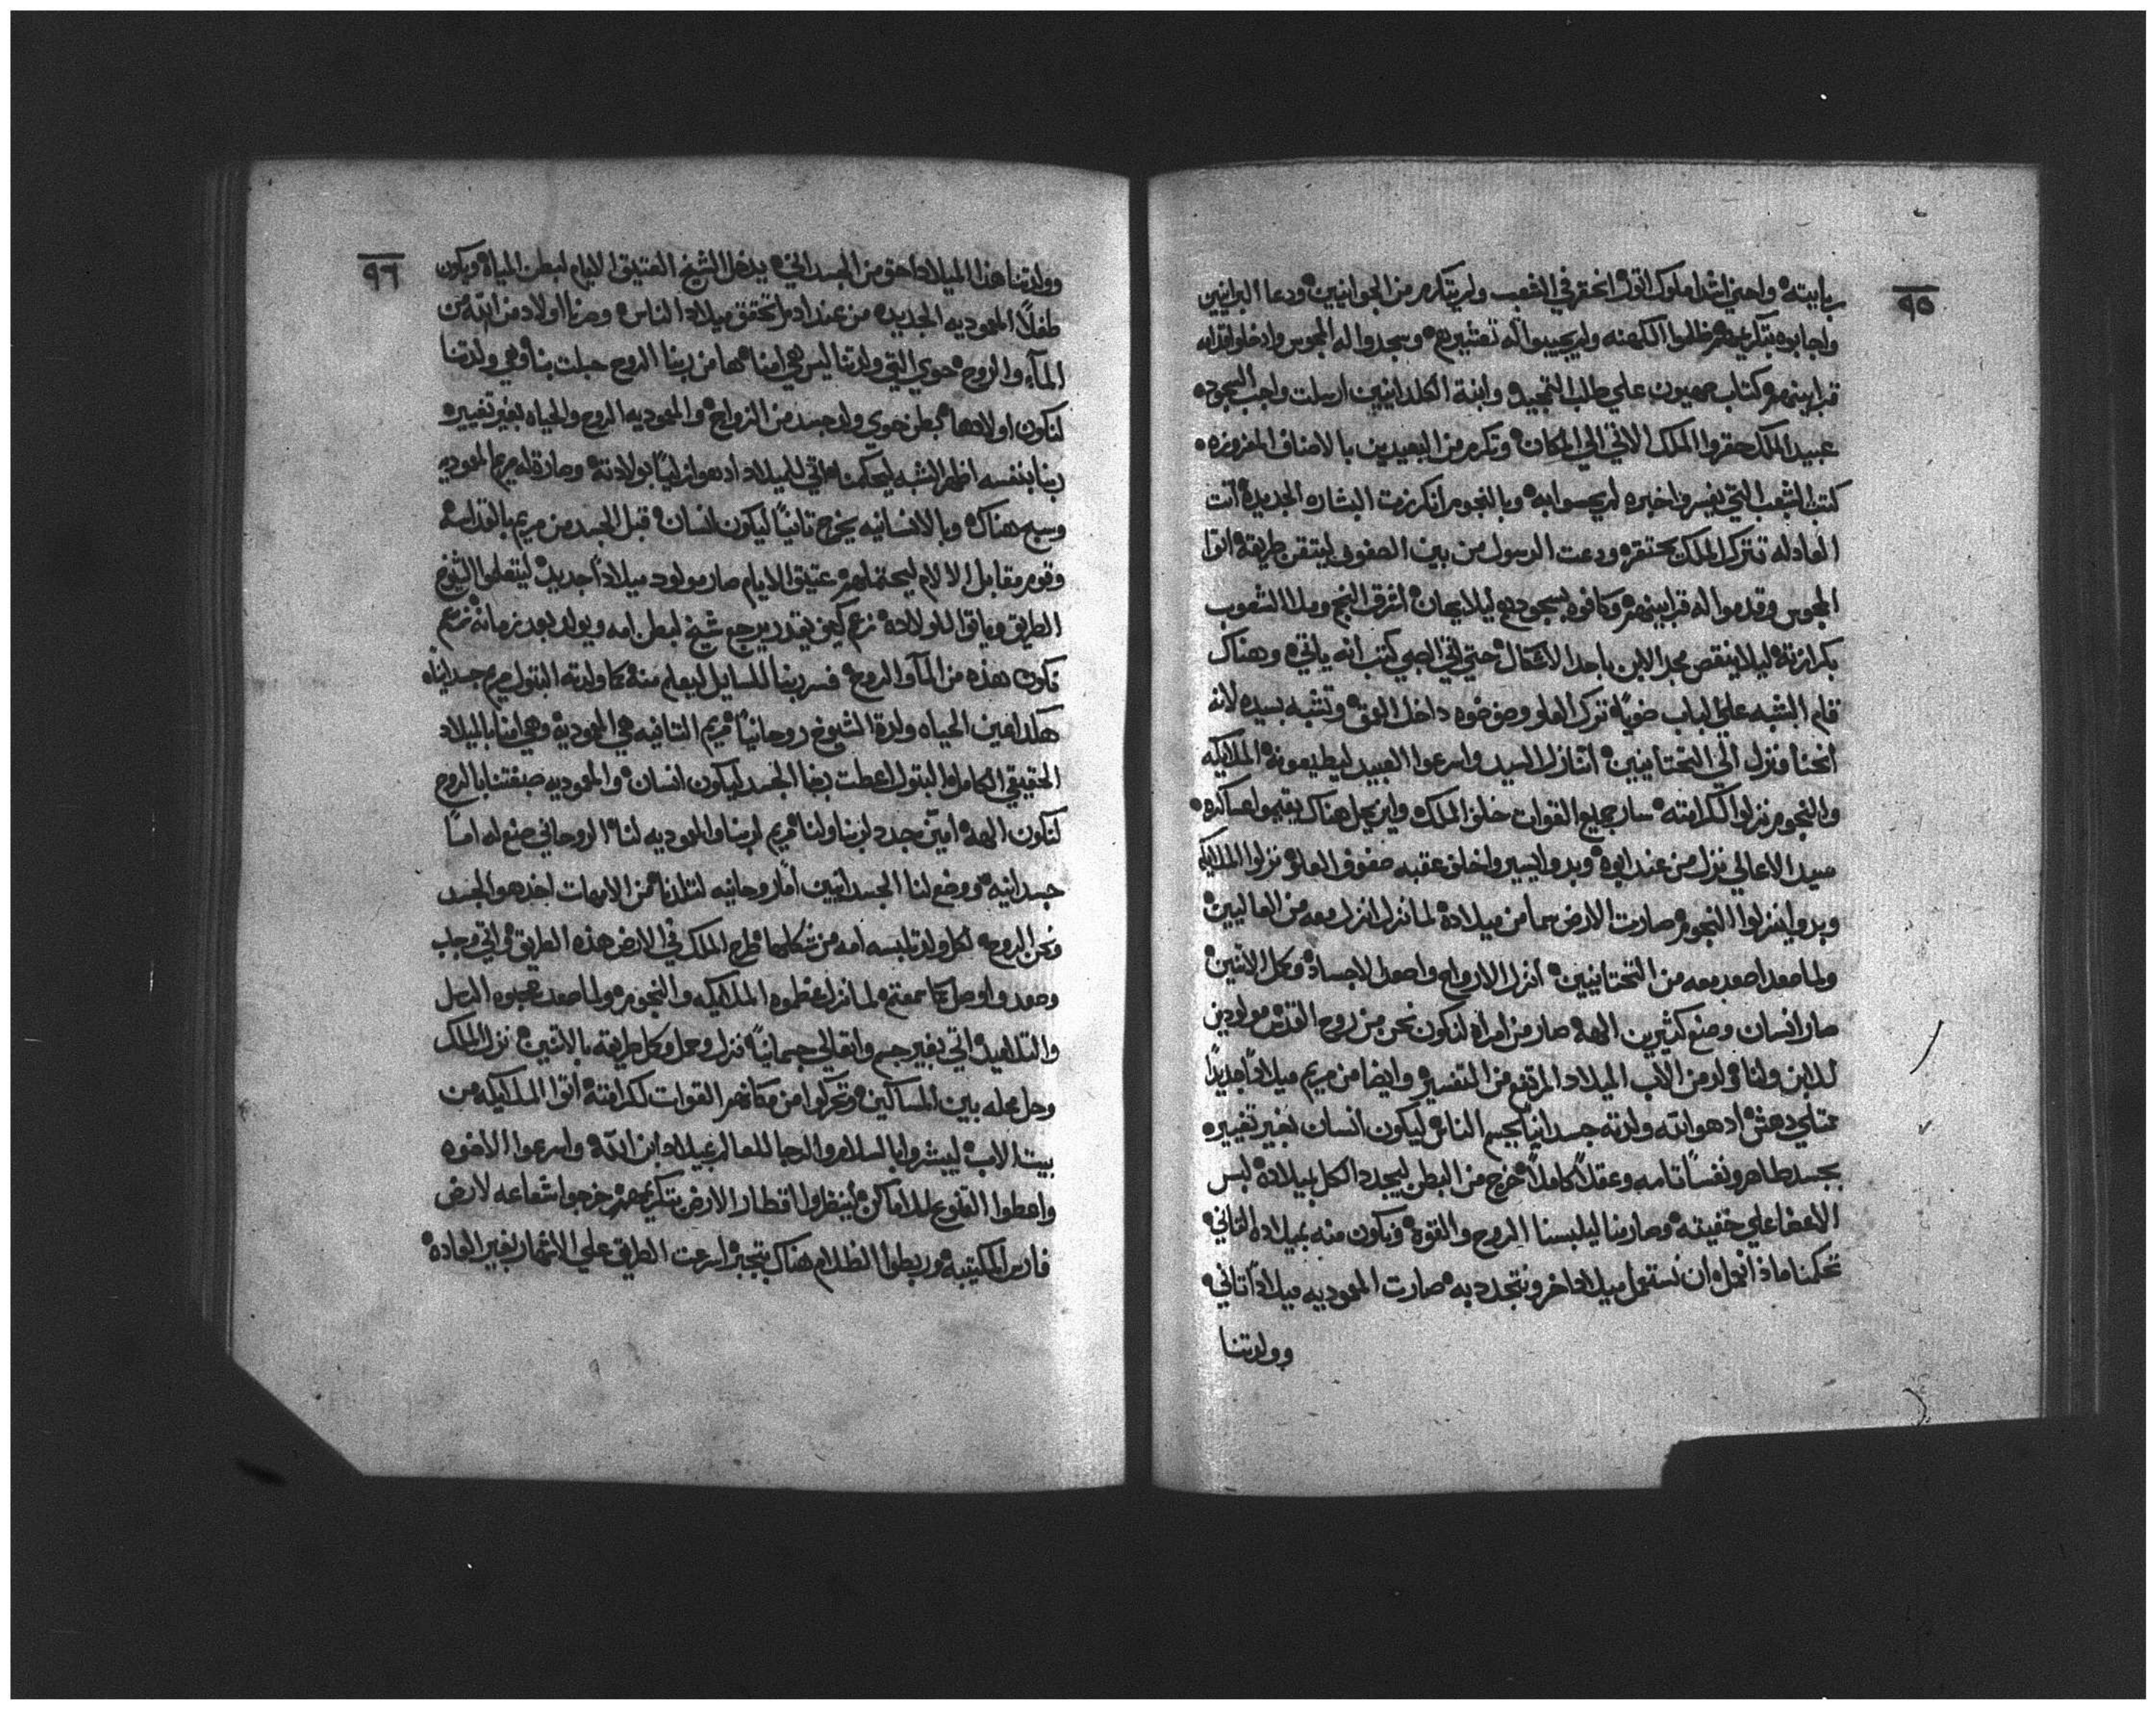 ٩٥
واجابوه بتكريمهم ظلموا الكهنه ولم يجيبوا له تعشيرهم وسجدوا له المجوس وادخلوا قدامه
قرابينهم كتاب صهيون علي طلب التمجيد وابنة الكلدانيين ارسلت واجب السجوده
عبيد الملك حقروا الملك الاتي الي المكان وتكرم من البعيدين بالاصناف
كتب الشعب التي يفسروا خبره لم يحسوا به وبالنجوم انكرزت البشاره الجديده اتت
العادله تترك الملك يحتقره ودعت الرسول من بين الصفوف ليتقن طريقه اتوا
المجوس وقدموا له قرابينهم وكافوه بسجودهم ليلا يهان اشرق النجم وملا الشعوب
بكرازته ليلا ينقص مجد الابن باحد الاشكال حتي اتي الصبي كتب انه ياتي وهناك
قام الشبه علي الباب ضويا ترك العلو وضوه داخل العمق وتشبه بسيده لانه
انحنا ونزل الي التحتانيين اتنازل السيد واسرعوا العبيد ليطيعونه الملايكه
والنجوم نزلوا لكرامته سار جميع القوات خلف الملك واين يحل هناك يقيموا عساكره
سيد الاعالي نزل من عند ابوه وبدوا يسيروا خلف عقبه صفوف العلو نزلوا الملايكه
وبدوا ينزلوا النجوم صارت الارض سما من ميلاده لما نزل انزل معه من العاليين
ولما صعد اصعد معه من التحتانيين انزل الارواح واصعد الاجساد وكل الاتنين
صار انسان وصنع كثيرين الهه صار من امراه لنكون نحن من روح القدس مولودين
للابن ولنا ولد من الاب الميلاد المرتفع من التفسير وايضا من مريم ميلادا جديدا
ممتلي دهش اد هو الله ولدته جسدانيا بجسم الناس ليكون انسان بغير تغييره
بجسد طاهر ونفسا تامه وعقلا كاملا خرج من البطن ليجدد الكل بميلاده لبس
الاعضا علي خفيته وصار بنا ليلبسنا الروح والقوه ونكون منه بميلاده التاني
تحكمنا ماذا نقول ان نستعمل ميلاد اخر ونتجدد به صارت المعموديه ميلادا تاني
وولدتنا
٩٦
وولدتنا هذا الميلاد احق من الجسداني يدخل الشيخ العتيق الايام لبطن المياه ويكون
طفلا المعموديه الجديده من عند ادم اتحقق ميلاد الناس وصرنا اولاد من الله من
المآء والروح حوي التي ولدتنا ليس هي امنا مها من ربنا الروح حبلت بنا وهي ولدتنا
لنكون اولادها بطن حوي ولد جسد من الزواج والمعموديه الروح والحياه بغير تغييره
ربنا بنفسه اظهر الشبه ليحكمنا اتي للميلاد اد هو ازليا بولادته وصارة له مريم المعموديه
وسبح هناك وبالانسانيه يخرج تانيا ليكون انسان قبل الجسد من مريم بالقداسه
وقوم مقابل الالام ليحتملهم عتيق الايام صار مولود ميلادا جديد ليتعلموا الشيوخ
الطريق وياتوا للولاده زعم كيف يقدر يرجع شيخ لبطن امه ويولد بعد زمانه زعم
تكون هذه من المآء والروح فسر ربنا للسايل ليعلم منه كما ولدته البتول مريم جسدانياه
هكدا عين الحياه ولدة الشيوخ روحانيا مريم التانيه هي المعموديه وهي امنا بالميلاد
الحقيقي الكامل البتول اعطت ربنا الجسد ليكون انسان والمعموديه صبغتنا بالروح
لنكون الهه امين جدد لربنا ولنا مريم لربنا والمعموديه لنا الروحاني صنع له اما
جسدانيه ووضع لنا الجسدانيين اما روحانيه لتلدنا من الامهات اخد هو الجسد
ونحن الروح لكل ولد تلبسه امه من شكلها طرح الملك في الارض هذه الطريق اتي وجاب
وصعد واوصل كما سمعتم لما نزل عظموه الملايكه والنجوم ولما صعد عجبوه الرسل
والتلاميد اتي بغير جسم وانتقل الي جسمانيا نزل وحمل وكل طريقه بالاتنين نزل الملك
وحل محله بين المساكين وتحركوا من مكانهم القوات لكرامته اتوا الملايكه من
بيت الاب ليبشروا بالسلام والرجا للعالم بميلاد ابن الله واسرعوا الاخوه
الارض بتكريمهم خرجوا شعاعه لارض
فارس وربطوا الظلام هناك بتجبر اسرعت الطريق علي الاتمار بغير العاده